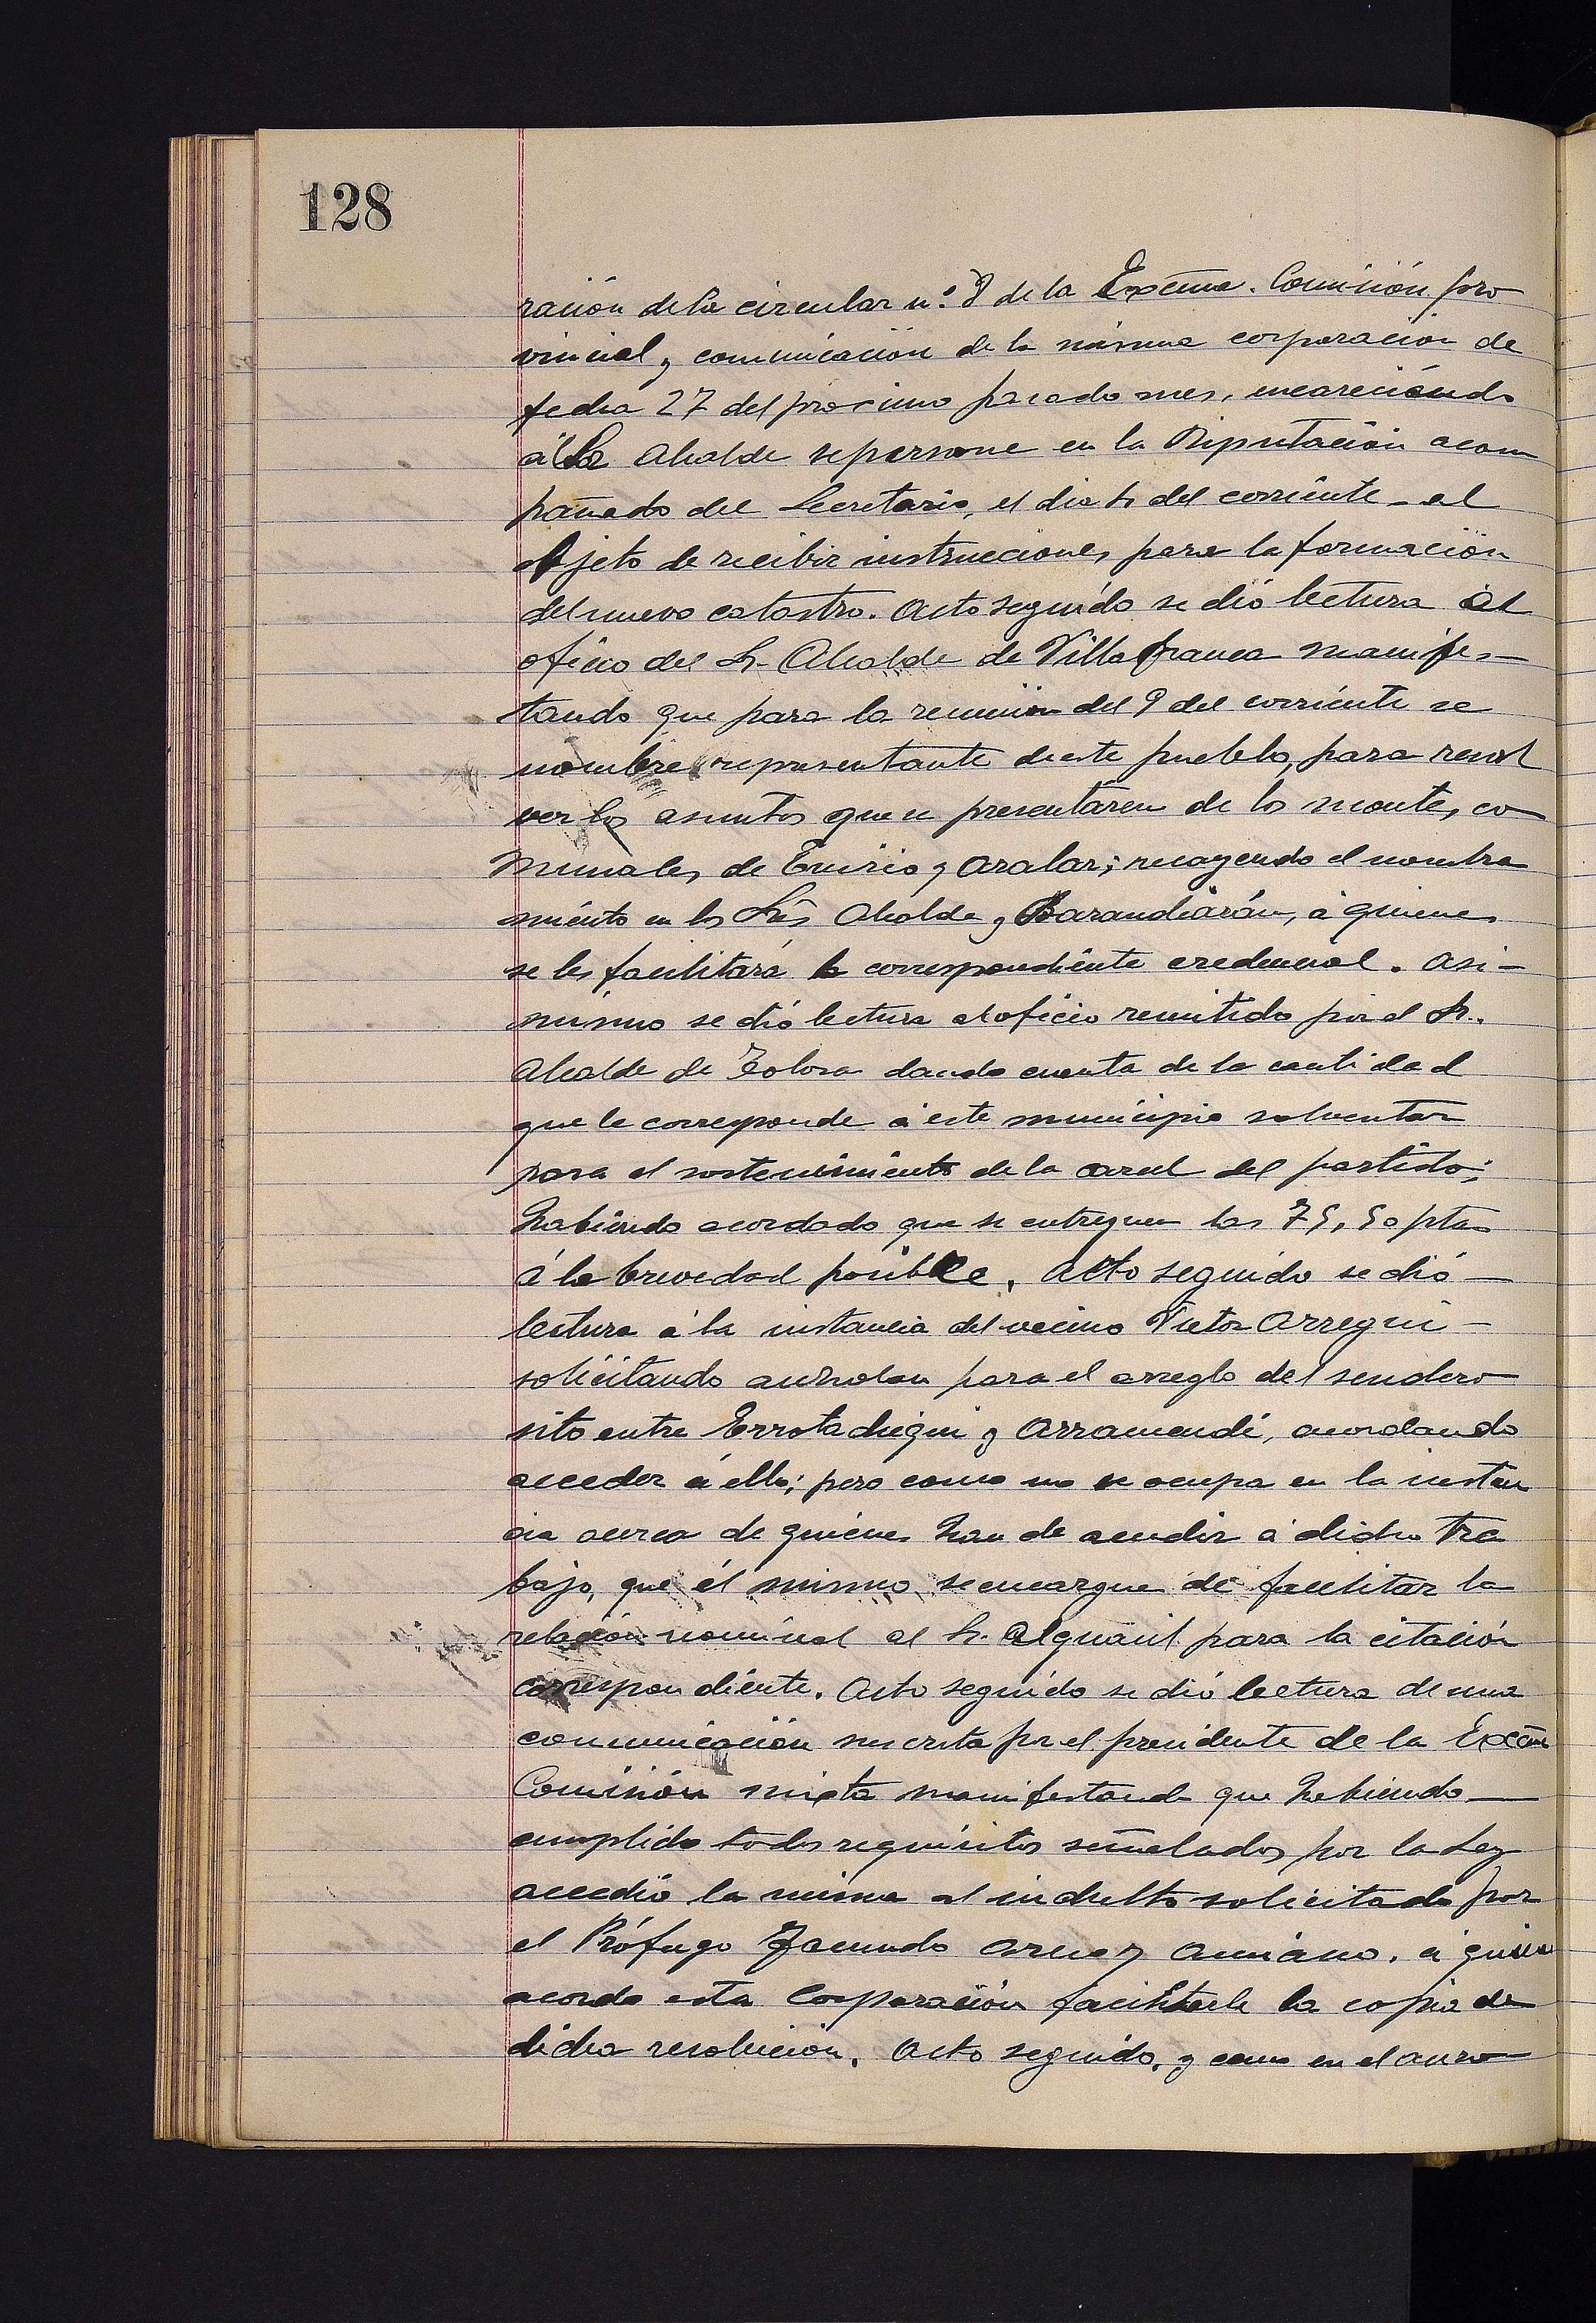 128
ración de la circular n.º 8 de la Excma. Comisión pro
vincial y comunicación de la misma corporación de
fecha 27 del procimo pasado mes, encareciendo
al Sr Alcalde se persone en la Diputación acom
pañado del Secretario, el dia del corriente al
objeto de recibir instrucciones para la formación
del nuevo catastro. Acto seguido se dió lectura al
oficio del Sr. Alcalde de Villafranca manifes-
tando que para la reunión del 9 del corriente se
nombre representante de este pueblo, para resol
ver los asuntos que se presentáren de los montes co
munales de Enirio y Aralar; recayendo el nombra
miento en los Srs Alcalde y Barandiarán, á quienes
se les facilitará la correspondiente credencial. Asi-
mismo se dió lectura al oficio remitido por el Sr.
Alcalde de Tolosa dando cuenta de la cantidad
que le corresponde á este municipio solventar
para el sostenimiento de la carcel del partido;
habiendo acordado que se entreguen las 75,50 ptas
á la brevedad posible. Acto seguido se dió
lectura á la instancia del vecino Victor Arregui
solicitando auzolan para el arreglo del sendero
sito entre Errotachegui y Arramendi, acordando
acceder á ello; pero como no se ocupa en la instan
cia acerca de quiénes han de acudir á dicho tra
bajo, que él mismo se encargue de facilitar la
relación nominal al Sr. Alguacil para la citación
correspondiente. Acto seguido se dió lectura de una
comunicación suscrita por el presidente de la Excma
Comisión mixta manifestando que habiendo
cumplido todos requisitos señalados por la Ley
accedió la misma al indulto solicitado por
el Prófugo Facundo Amiano, á quien
acordo esta Corporación facilitarle la copia de
dicha resolución. Acto seguido, y como en el